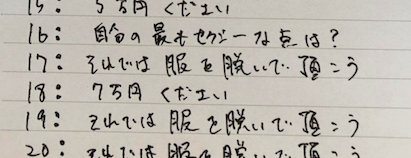 15: 5万円ください
16: 自分の最もセクシーな点は?
17: それでは服を脱いで頂こう
18: 7万円ください
19: それでは服を脱いで頂こう
20: それでは服を脱いで頂こう